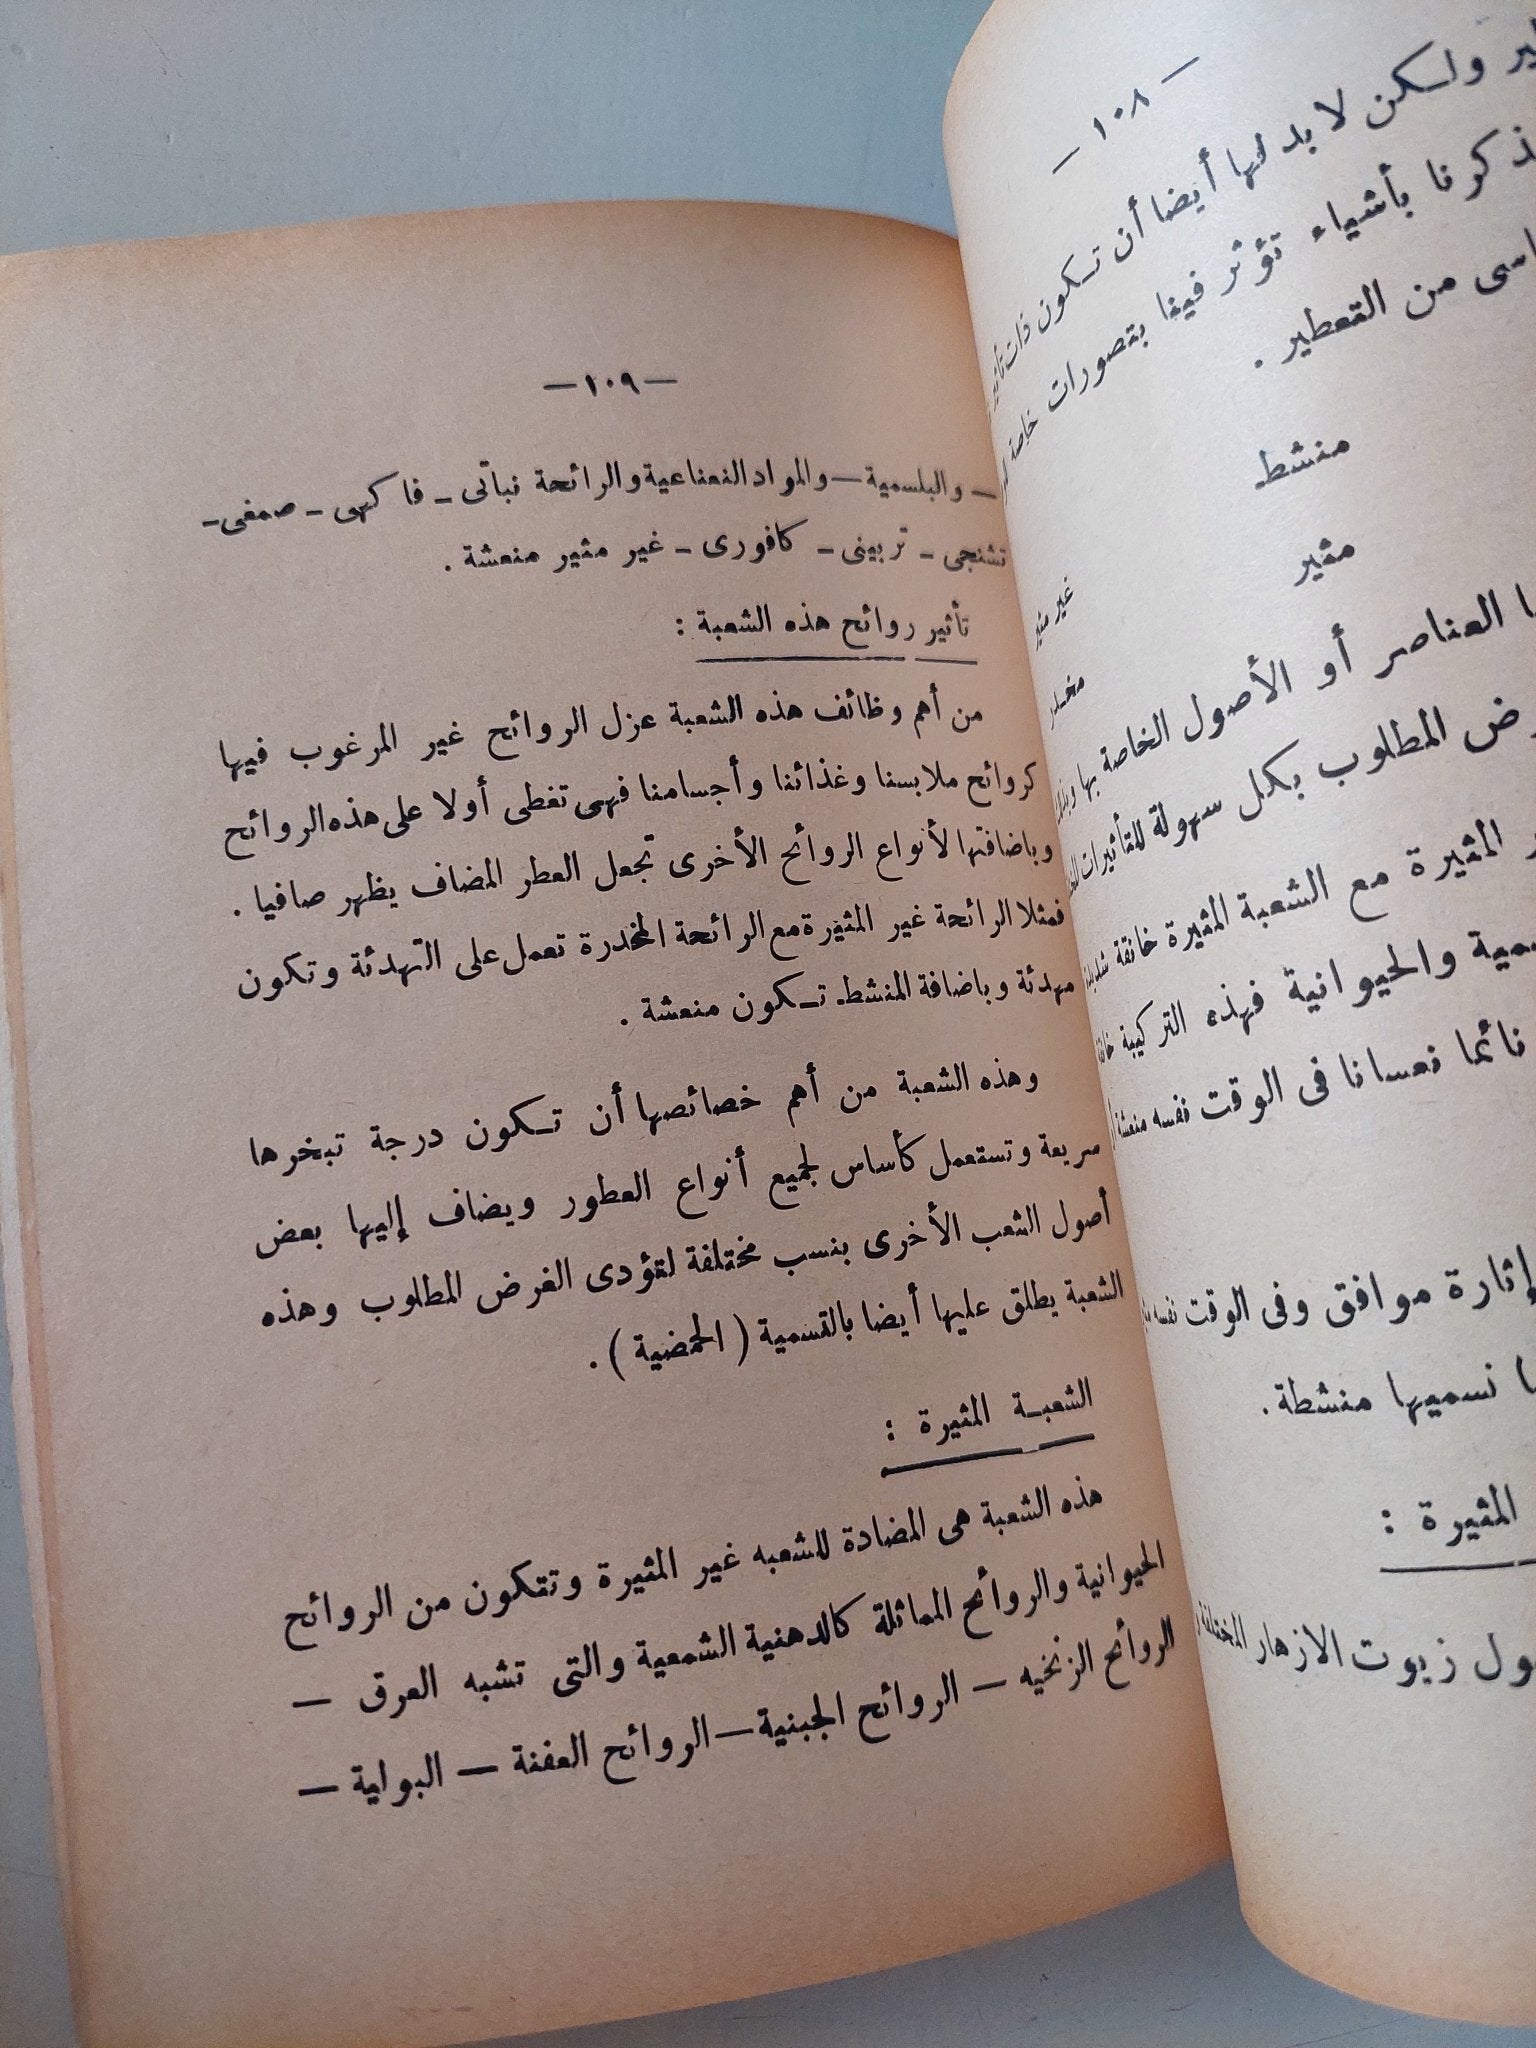 — ١٠٨ —
ولكن لا بد لها أيضا أن تكون ذات
ذكرنا بأشياء تؤثر فينا بتصورات خاصة
من التعطير .
منشط
مثير
غير مثير
مخدر
العناصر أو الأصول الخاصة بها
المطلوب بكل سهولة للتأثيرات
المثيرة مع الشعبة المثيرة خانقة
والحيوانية فهذه التركيبة
نائما نعسانا فى الوقت نفسه منعشة
إثارة موافق وفى الوقت نفسه
نسميها منشطة .
المثيرة :
زيوت الازهار المختلفة
— ١٠٩ —
— والبلسمية — والمواد النعناعية والرائحة نباتى – فاكهى – صمغى –
تشنجى – تربينى – كافورى – غير مثير منعشة .
تأثير روائح هذه الشعبة :
من أهم وظائف هذه الشعبة عزل الروائح غير المرغوب فيها
كروائح ملابسنا وغذائنا وأجسامنا فهى تغطى أولا على هذه الروائح
وباضافتها لأنواع الروائح الأخرى تجعل العطر المضاف يظهر صافيا .
فمثلا الرائحة غير المثيرة مع الرائحة المخدرة تعمل على التهدئة وتكون
مهدئة وباضافة المنشط تكون منعشة .
وهذه الشعبة من أهم خصائصها أن تكون درجة تبخرها
سريعة وتستعمل كأساس لجميع أنواع العطور ويضاف إليها بعض
أصول الشعب الأخرى بنسب مختلفة لتؤدى الغرض المطلوب وهذه
الشعبة يطلق عليها أيضا بالتسمية ( الحمضية ) .
الشعبة المثيرة :
هذه الشعبة هى المضادة للشعبه غير المثيرة وتتكون من الروائح
الحيوانية والروائح المماثلة كالدهنية الشمعية والتى تشبه العرق —
الروائح الزنخيه — الروائح الجبنية — الروائح العفنة — البواية —